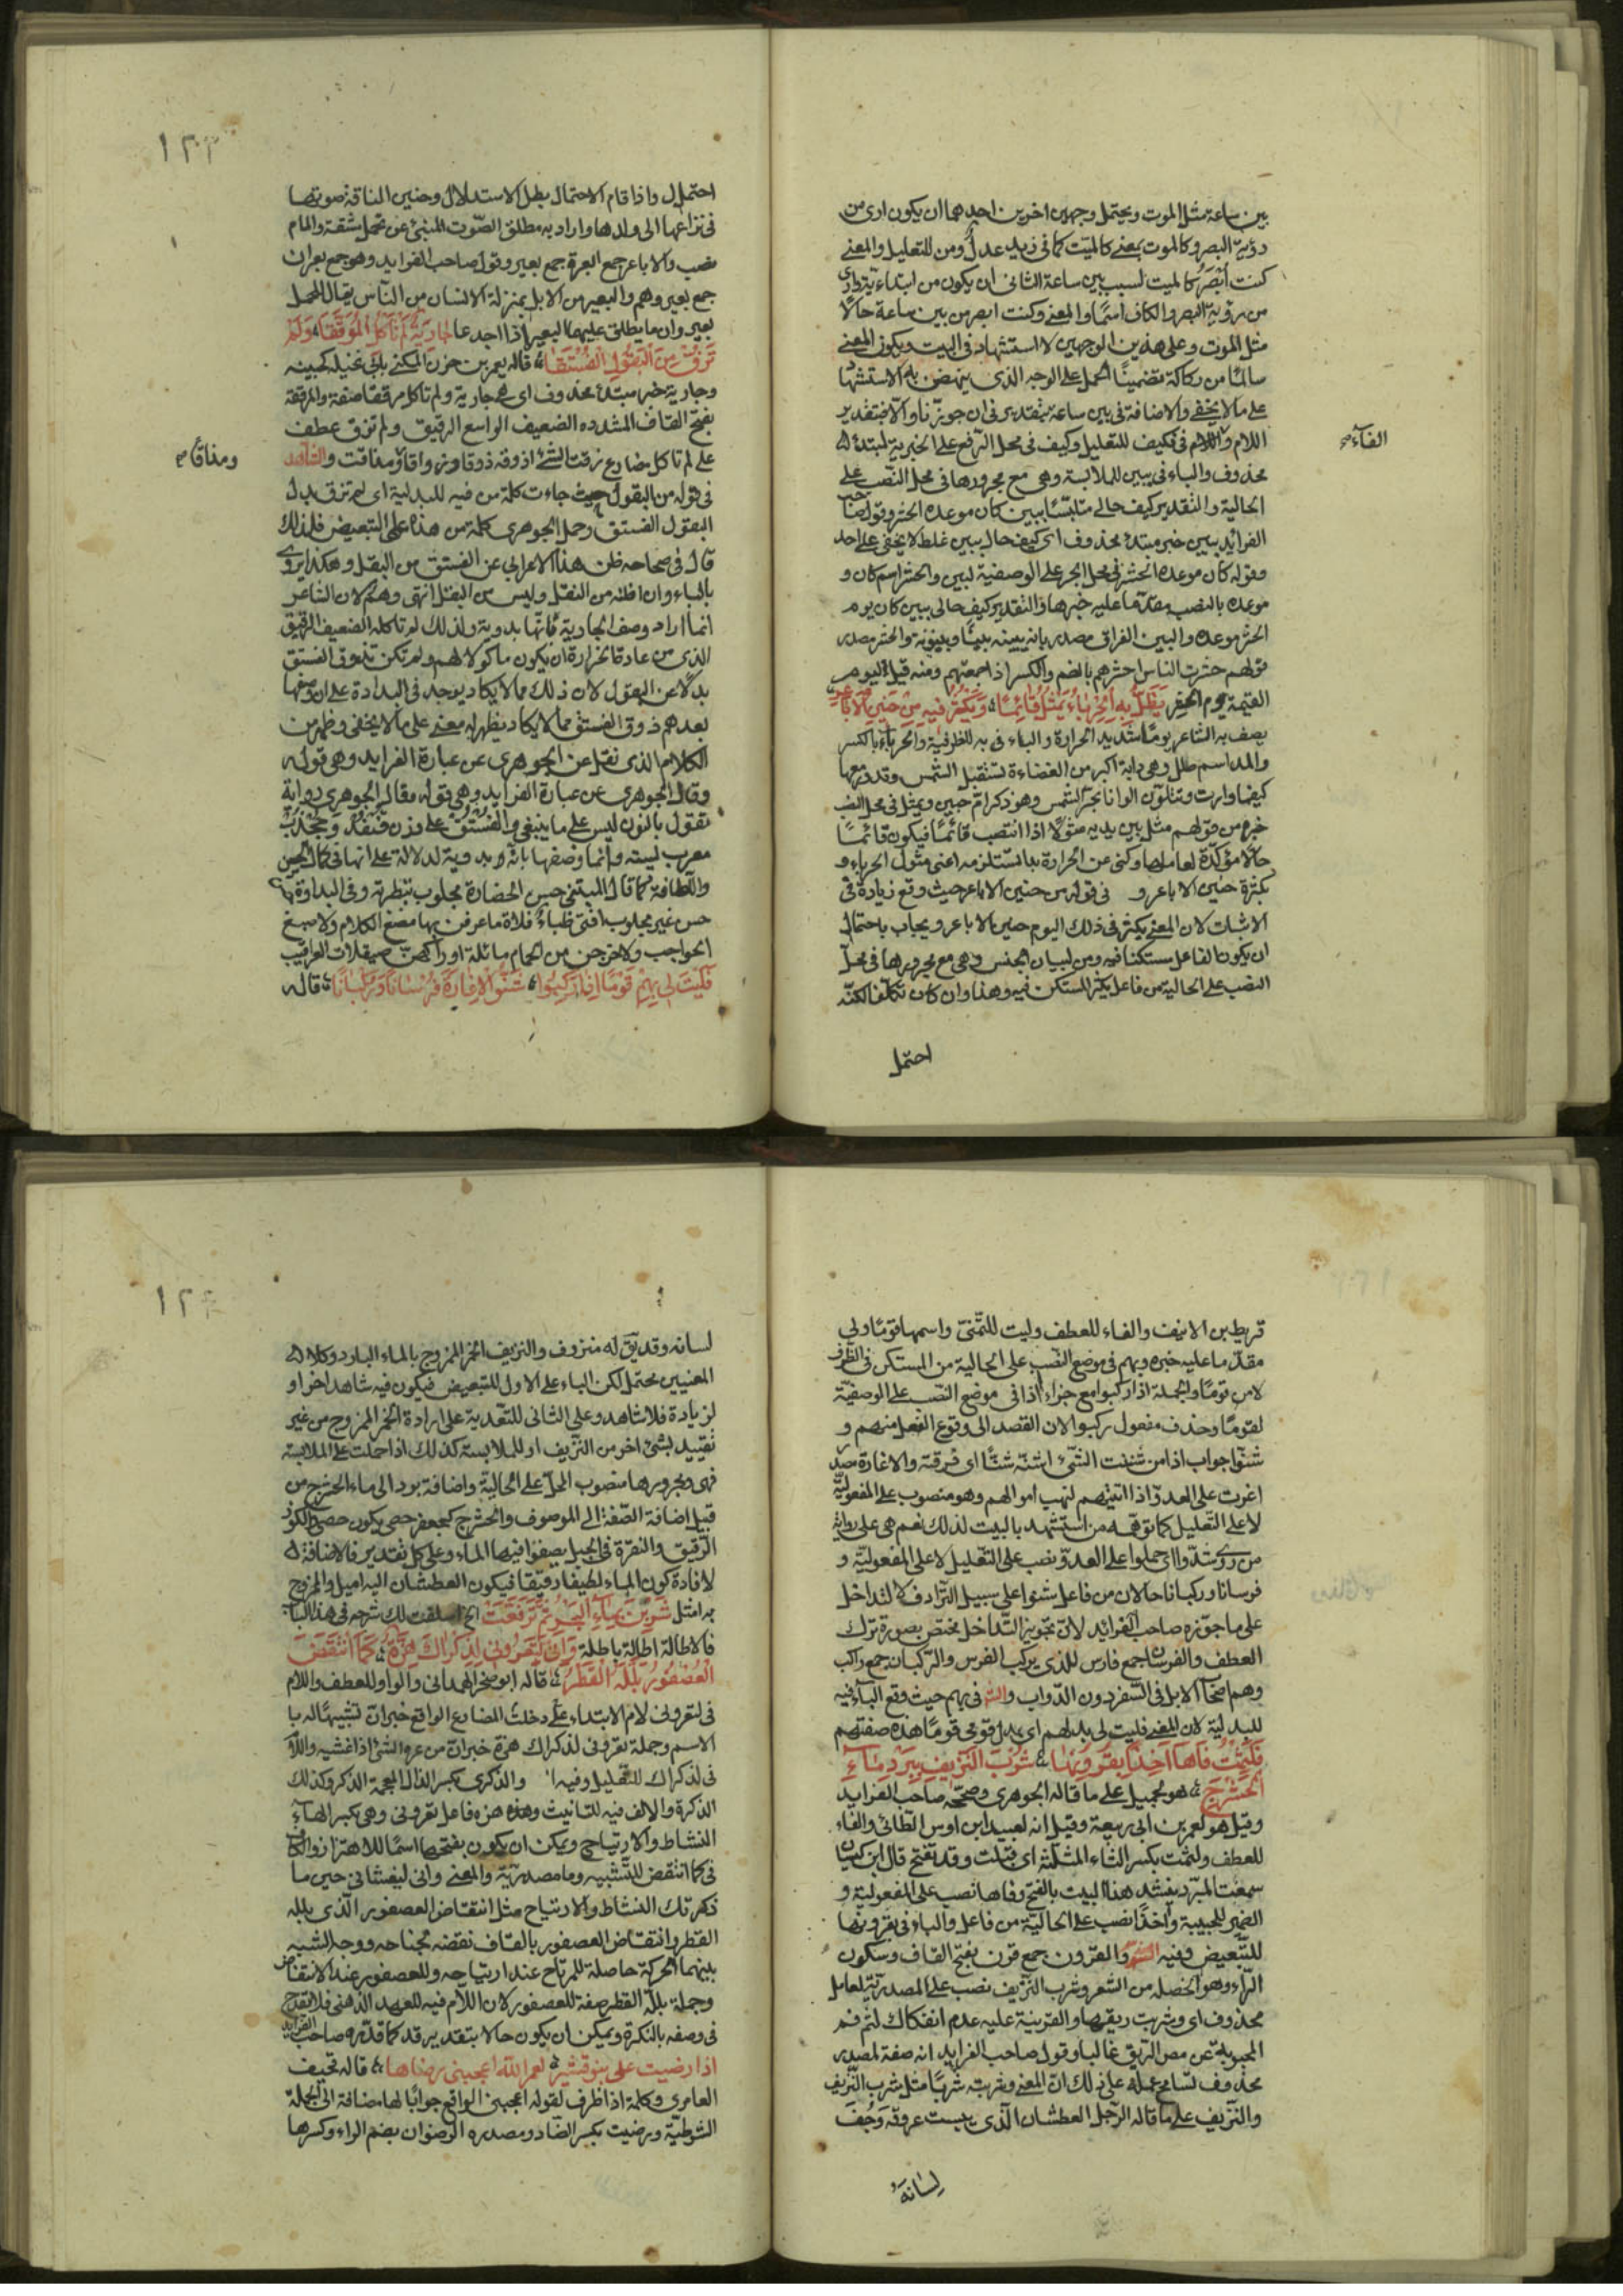 بين ساعة مثل الموت ويحتمل وجهين اخرين احدهما ان يكون ارى من
رؤية البصر وكالموت بمعنى كالميت كما فى زيد عدل ومن للتعليل والمعنى
كنت أبْصَرُ كالميت لسبب بين ساعة الثانى ان يكون من ابتدائية وارى
من رؤية البصر والكاف اسمًا والمعنى وكنت ابصر من بين ساعة حالًا
مثل الموت وعلى هذين الوجهين لا استشهاد فى البيت ويكون المعنى
سالمًا من ركاكة تضمينًا الحمل على الوجه الذى ينهض به الاستشهاد
على ما لا يخفى والاضافة فى بين ساعة بتقدير فى ان جوّزنا والا فبتقدير
اللام واللام فى فكيف للتعليل وكيف فى محل الرفع على الخبرية لمبتدء
الفآء صح
محذوف والباء فى ببين للملابسة وهى مع مجرورها فى محل النصب على
الحالية والتقدير كيف حالى متلبسًا ببين كان موعده الحشر وقول صاحب
الفرايد ببين خبر مبتدء محذوف اى كيف حال ببين غلط لا يخفى على احد
وقوله كان موعده الحشر فى محل الجر على الوصفية لبين والحشر اسم كان و
موعده بالنصب مقدّما عليه خبرها والتقدير كيف حالى ببين كان يوم
الحشر موعده والبين الفراق مصدر بانه يبينه بينًا وبينونة والحشر مصدر
قولهم حشرت الناس احشرهم بالضم والكسر اذا جمعتهم ومنه قيل ليوم
القيمة يوم الحشر يَظَلُّ بِهِ الْحِرْبَاءُ يَمْثُلُ قَائِمًا وَيَكْثُرُ فِيهِ مِنْ حَنِينِ الْاَبَاعِرِ
يصف به الشاعر يومًا شديد الحرارة والباء فى به للظرفية والحرباء بالكسر
والمد اسم ظل وهى دابة اكبر من العضاءة تستقبل الشمس وتدور معها
كيفما دارت وتتلوّن الوانا بحرّ الشمس وهو ذكر ام حبين ويمثل فى محل النصب
خبره من قولهم مثل بين يديه مثولًا اذا انتصب قائمًا فيكون قائمًا
حالًا مؤكّدة لعاملها وكنى عن الحرارة بما تستلزمه اعنى مثول الحرباء و
بكثرة حنين الاباعر و فى قوله من حنين الاباعر حيث وقع زيادة فى
الاثبات لان المعنى يكثر فى ذلك اليوم حنين الاباعر ويجاب باحتمال
ان يكون الفاعل مستكنا فيه ومن لبيان الجنس وهى مع مجرورها فى محل
النصب على الحالية من فاعل يكثر المستكن فيه وهذا وان كان تكلفا لكنّه
احتمل
١٢٣
احتمل واذا قام الاحتمال بطل الاستدلال وحنين الناقة صوتها
فى نزاعها الى ولدها واراد به مطلق الصّوت المنبئ عن تحمل شقة والمام
نصب والاباعر جمع ابعرة جمع بعير وقول صاحب الفرايد وهو جمع بعران
جمع بعير وهم والبعير من الابل بمنزلة الانسان من النّاس يقال للجمل
بعير وان ما يطلق عليهما البعير اذا اجدعا جَارِيَةٌ لَمْ تَأْكُلِ الْمُرَقَّقَا وَلَمْ
تَذُقْ مِنَ الْبُقُولِ الْفُسْتُقَا قاله يعمر بن حزن المكنى بابى نخيله كجهينه
وجارية خبر مبتدء محذوف اى هى جارية ولم تاكل مرققا صفة والمرققة
بفتح القاف المشدده الضعيف الواسع الرقيق ولم تذق عطف
على لم تاكل مضارع ذقت الشئ اذوقه ذوقا وذواقا ومذاقة والشاهد
ومذاقًا صح
فى قوله من البقول حيث جاءت كلمة من فيه للبدلية اى لم تذق بدل
البقول الفستق وحمل الجوهرى كلمة من هذه على التبعيض فلذلك
قال فى صحاحه ظن هذا الاعرابى عن الفستق من البقل وهكذا يروى
بالباء وانا اظنه من النقل وليس من البقل انتهى وهم لان الشاعر
انما اراد وصف الجارية فانّها بدوية ولذلك لم تاكله الضعيف الرقيق
الذى من عادة الحرارة ان يكون ماكولا لهم ولم تكن تذوق الفستق
بدلًا عن البقول لان ذلك مما لا يكاد يوجد فى البدادة على ان وصفها
بعدهم ذوق الفستق مما لا يكاد يظهر له معنى على ما لا يخفى وظهر من
الكلام الذى نقل عن الجوهرى عن عبارة الفرايد وهى قوله
وقال الجوهرى عن عبارة الفرايد وهى قوله مقال الجوهرى رواية
نقول بالنون ليس على ما ينبغى والفستق على وزن قنفذ وجُخْدَب
معرب لپسته وانما وصفها بانّها بدوية لدلالة على انها فى كمال الحسن
واللطافة كما قال المتنبى حسن الحضارة مجلوب بتطرية وفى البداوة
حسن غير مجلوب افدى ظباء فلاة ما عرفن بها مضغ الكلام ولا صبغ
الحواجب ولا خرجن من الحمام ماثلة اوراكهنّ صقيلات العراقيب
فَلَيْتَ لِى بِهِمْ قَوْمًا اِذَا رَكِبُوا شَنُّوا الْاِغَارَةَ فُرْسَانًا وَرُكْبَانًا قاله
قريط بن الانيف والفاء للعطف وليت للتمنّى واسمها قومًا ولى
مقدّما عليه خبره وبهم فى موضع النصب على الحالية من المستكن فى الظرف
لا من قومًا والجملة اذا ركبوا مع جزاء اذا فى موضع النصب على الوصفيّة
لقومًا وحذف مفعول ركبوا لان القصد الى وقوع الفعل منهم و
شنّوا جواب اذا من شننت الشّئ اشنّه شنًّا اى فرقته والاغارة مصدر
اغرت على العدوّ اذا اتيتهم لنهب اموالهم وهو منصوب على المفعوليّة
لا على التّعليل كما توهمه من استشهد بالبيت لذلك نعم هى على رواية
من روى شدّوا اى حملوا على العدوّ نصب على التّعليل لا على المفعوليّة و
فرسانا وركبانا حالان من فاعل شنوا على سبيل التّرادف لا التداخل
على ما جوّزه صاحب الفرائد لانّ تجويز التّداخل مختص بصورة ترك
العطف والفرسان جمع فارس للذى يركب الفرس والرّكبان جمع راكب
وهم اصحاب الابل فى السّفر دون الدّواب والشاهد فى بهم حيث وقع الباء فيه
للبدلية لان المعنى فليت لى بدلهم اى بدل قومى قومًا هذه صفتهم
فَلَثِمْتُ فَاهَا آخِذًا بِقُرُونِهَا شُرْبَ النَّزِيفِ بِبَرْدِ مَاءِ
الْحَشْرَجِ هو لجميل على ما قاله الجوهرى وصحّحه صاحب الفرايد
وقيل هو لعمر بن ابى ربيعة وقيل انه لعبيد ابن اوس الطّائى والفاء
للعطف ولثمت بكسر الثاء المثلّثة اى قبّلت وقد تفتح قال ابن كيسان
سمعت المبرّد ينشد هذا البيت بالفتح وفاها نصب على المفعولية و
الضمير للحبيبة وآخذًا نصب على الحاليّة من فاعل والباء فى بقرونها
للتّبعيض وفيه الشاهد والقرون جمع قرن بفتح القاف وسكون
الرّاء وهو الخصله من الشّعر وشرب النّزيف نصب على المصدريّة لعامل
محذوف اى وشربت ريقها والقرينة عليه عدم انفكاك لثم فم
المحبوبة عن مص الرّيق غالبا وقول صاحب الفرايد انه صفة لمصدر
محذوف تسامح حمله على ذلك انّ المعنى وشربت شربًا مثل شرب النّزيف
والنّزيف على ما قاله الرّجل العطشان الّذى يبست عروقه وَجُفَّ
لِسَانُهُ
١٢٤
لسانه وقد يق له منزوف والنزيف الخمر الممزوج بالماء البارد وكلا
المعنيين محتمل لكن الباء على الاول للتبعيض فيكون فيه شاهد اخر او
لزيادة فلا شاهد وعلى الثانى للتّعدية على ارادة الخمر الممزوج من غير
تقييد بشئ اخر من النزيف او للملابسة كذلك اذا حملت على الملابسة
فهى ومجرورها منصوب المحل على الحاليّة واضافة برد الى ماء الحشرج من
قبيل اضافة الصّفة الى الموصوف والحشرج كجعفر حصى يكون حصى الكوز
الرّقيق والنقرة فى الجبل يصفوا فيها الماء وعلى كل تقدير فالاضافة
لافادة كون الماء لطيفا رقيقا فيكون العطشان اليه اميل والمزوج
به امثل شَرِبْنَ بِمَاءِ الْبَحْرِ ثُمَّ تَرَفَّعَتْ الخ اسلفت لك شرحه فى هذا الباب
فالاطالة اطالة باطلة وَاِنِّى لَتَعْرُونِى لِذِكْرَاكِ هِزَّةٌ كَمَا انْتَفَضَ
الْعُصْفُورُ بَلَّلَهُ الْقَطْرُ قاله ابو صخر الهمدانى والواو للعطف واللام
فى لتعرونى لام الابتداء على دخلت المضارع الواقع خبر انّ تشبيهًا له با
الاسم وجملة تعرونى لذكراك هزة خبر انّ من عره الشئ اذا غشيه واللام
فى لذكراك للتّعليل وفيه والذكرى بكسر الذال المعجمة الذكر وكذلك
الذكرة والالف فيه للتانيث وهذه هزه فاعل تعرونى وهى بكسر الهاء
النشاط والارتياح ويمكن ان يكون بفتحها اسمًا للاهتزاز والكاف
فى كما انتفض للتّشبيه وما مصدريّة والمعنى وانى ليغشانى حين ما
ذكرتك النشاط والارتياح مثل انتقاض العصفور الّذى بلله
القطر وانتقاض العصفور بالقاف نفضه بجناحه ووجه الشبه
بينهما الحركة حاصلة للمرتاح عند ارتياحه وللعصفور عند الانتقاض
وجملة بلله القطر صفة للعصفور لان اللام فيه للعهد الذهنى فلا يقدح
فى وصفه بالنكرة ويمكن ان يكون حالا بتقدير قد كما قدّره صاحب الفرايد
اذا رضيت على بنو قشير لعمر اللّه اعجبنى رضاها قاله تحيف
العامرى وكلمة اذا ظرف لقوله اعجبنى الواقع جوابًا لها مضافة الى الجملة
الشرطيّة ورضيت بكسر الضاد ومصدره الرضوان بضم الراء وكسرها